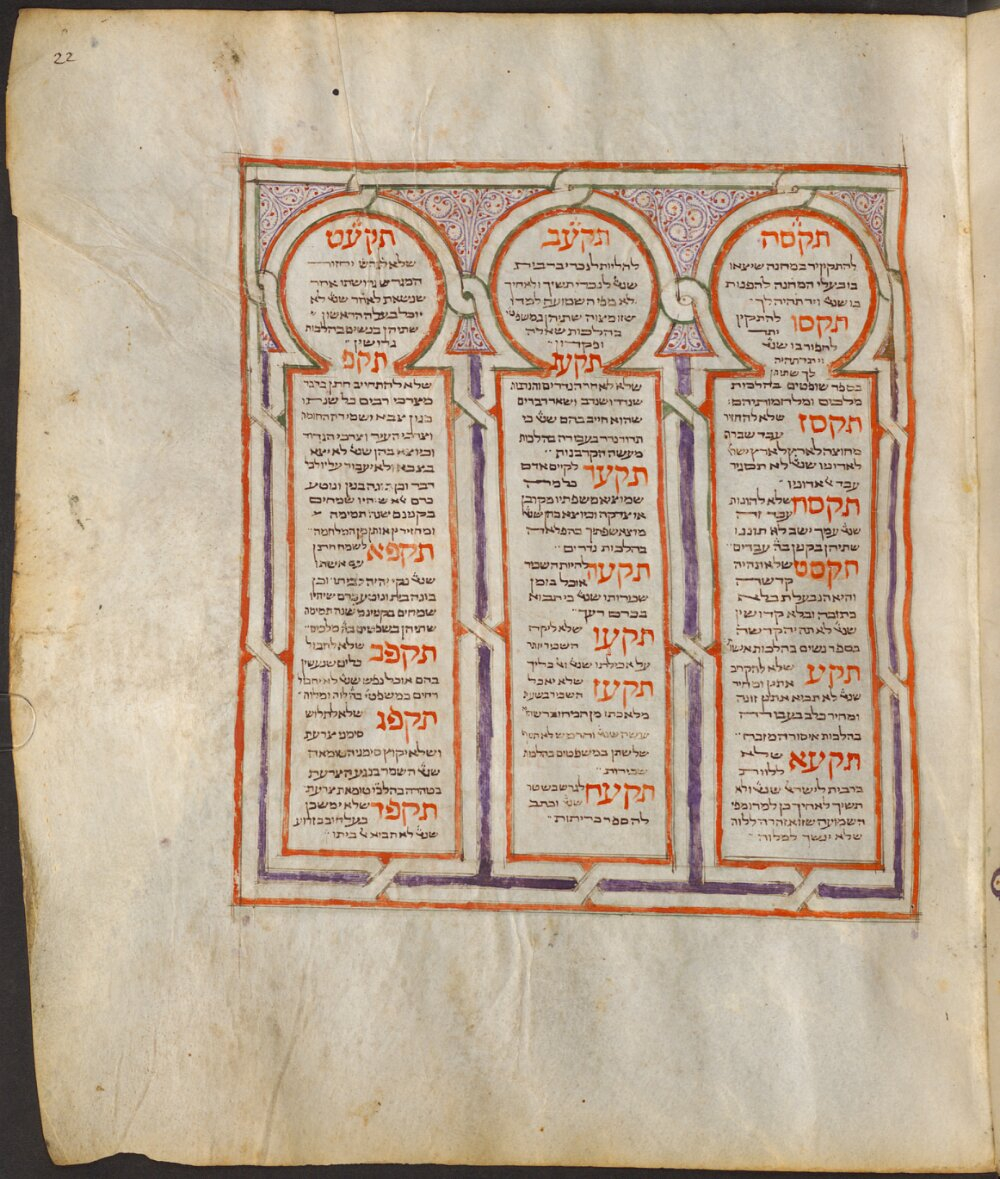 22
תקסה
להתקין יד במחנה שיצאו
בו בעלי המחנה להפנות
בו שנ' ויד תהיה לך
תקסו להתקין
יתד
לחפור בו שנ'
ויתד תהיה
לך שתיהן
בספר שופטים בהלכות
מלכים ומלחמותיהם
תקסז שלא להחזיר
עבד שברח
מחוצה לארץ לארץ ישר'
לאדוניו שנ' לא תסגיר
עבד אל אדוניו
תקסח שלא להונות
עבד זה
שנ' עמך ישב לא תוננו
שתיהן בקנין בה' עבדים
תקסט שלא תהיה
קדשה
והיא הנבעלת בלא
כתובה ובלא קדושין
שנ' לא תהיה קדשה
בספר נשים בהלכות אישו'
תקע שלא להקריב
אתנן ומחיר
שנ' לא תביא אתנן זונה
ומחיר כלב בעבודה
בהלכות איסורה מזבח
תקעא שלא
ללוות
ברבית לישראל שנ' לא
תשיך לאחיך כן למדו מפי
השמועה שזו אזהרה ללוה
שלא ינשך למלוה
תקעב
להלוות לנכרי ברבית
שנ' לנכרי תשיך ולאחיך
לא מפי השמועה למדו
שזו מצוה שתיהן במשפטי'
בהלכות שאלה
ופקדון
תקעג
שלא לאחר הנדרים והנדבות
שנדר ושנדב ושאר דברים
שהוא חייב בהם שנ' כי
תדור נדר בעבודה בהלכות
מעשה הקרבנות
תקעד לקיים אדם
כל מה
שמוציא משפתיו מקרבן
או צדקה וכיוצא בהן שנ'
מוצא שפתיך בהפלאה
בהלכות נדרים
תקעה להיות השכיר
אוכל בזמן
שכירותו שנ' כי תבוא
בכרם רעך
תקעו שלא יקח
השכיר יותר
על אכילתו שנ' ואל כליך
תקעז שלא יאכל
השכיר בשעת
מלאכתו מן המחובר
שלשתן במשפטים בהלכות
שכירות
תקעח לגרש בשטר
שנ' וכתב
לה ספר כריתות
תקעט
המגרש גרושתו אחר
שנשאת לאחר שנ' לא
יוכל בעלה הראשון
שתיהן בנשים בהלכות
גרושין
תקפ
שלא להתחייב חתן בדבר
מצרכי רבים כל שנתו
כגון צבא ושמירת החומה
וצרכי העיר וצרכי הגדוד
וכיוצא בהן שנ' לא יצא
בצבא ולא יעבור עליו לכל
דבר וכן בונה בנין ונוטע
כרם שיהיו שמחים
בקנינם שנה תמימה
ומחזירין אותן מן המלחמה
תקפא לשמח חתן
עם אשתו
שנ' נקי יהיה לביתו וכן
בונה בית ונוטע כרם שיהיו
שמחים בקנינם שנה תמימה
שתיהן בשפטים בה' מלכים
תקפב שלא לחבול
כלים שעושין
בהם אוכל נפש שנ' לא יחבול
רחים במשפטי' בה' מלוה ולוה
תקפג שלא לתלוש
סימני צרעת
ושלא יקוץ סימני הטומאה
שנ' השמר בנגע הצרעת
בטהרה בהלכ' טומאת צרעת
תקפד שלא ימשכן
בעל חוב בזרוע
שנ' לא תבוא אל ביתו